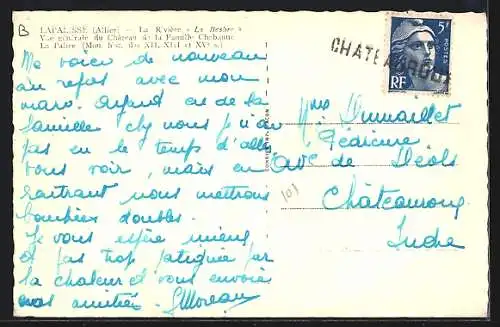 B
LAPALISSE (Allier) - La Rivière « La Besbre »
Vue générale du Château de la Famille Chabanne
La Palice (Mon hist. des XII, XIII et XVe s.)
Me voici de nouveau
au repos avec mon
mari. Ayant eu de la
famille chez nous je n'ai
pas eu le temps d'aller
vous voir, mais en
rentrant nous mettrons
bouchées doubles.
Je vous espère mieux
et pas trop fatiguée par
la chaleur et vous envoie
nos amitiés. GMoreau
CHATEAUROUX
5F
POSTES
RF
Mme Dumaillet
Pédicure
ave de Déols
Châteauroux
Indre